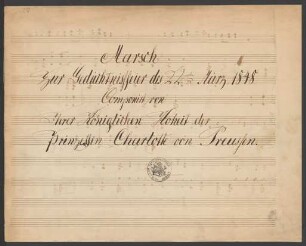 Marsch
Zur Gedächtnissfeier des 22ten März 1848
Componirt von
Ihrer Königlichen Hoheit der
Prinzessin Charlotte von Preussen.